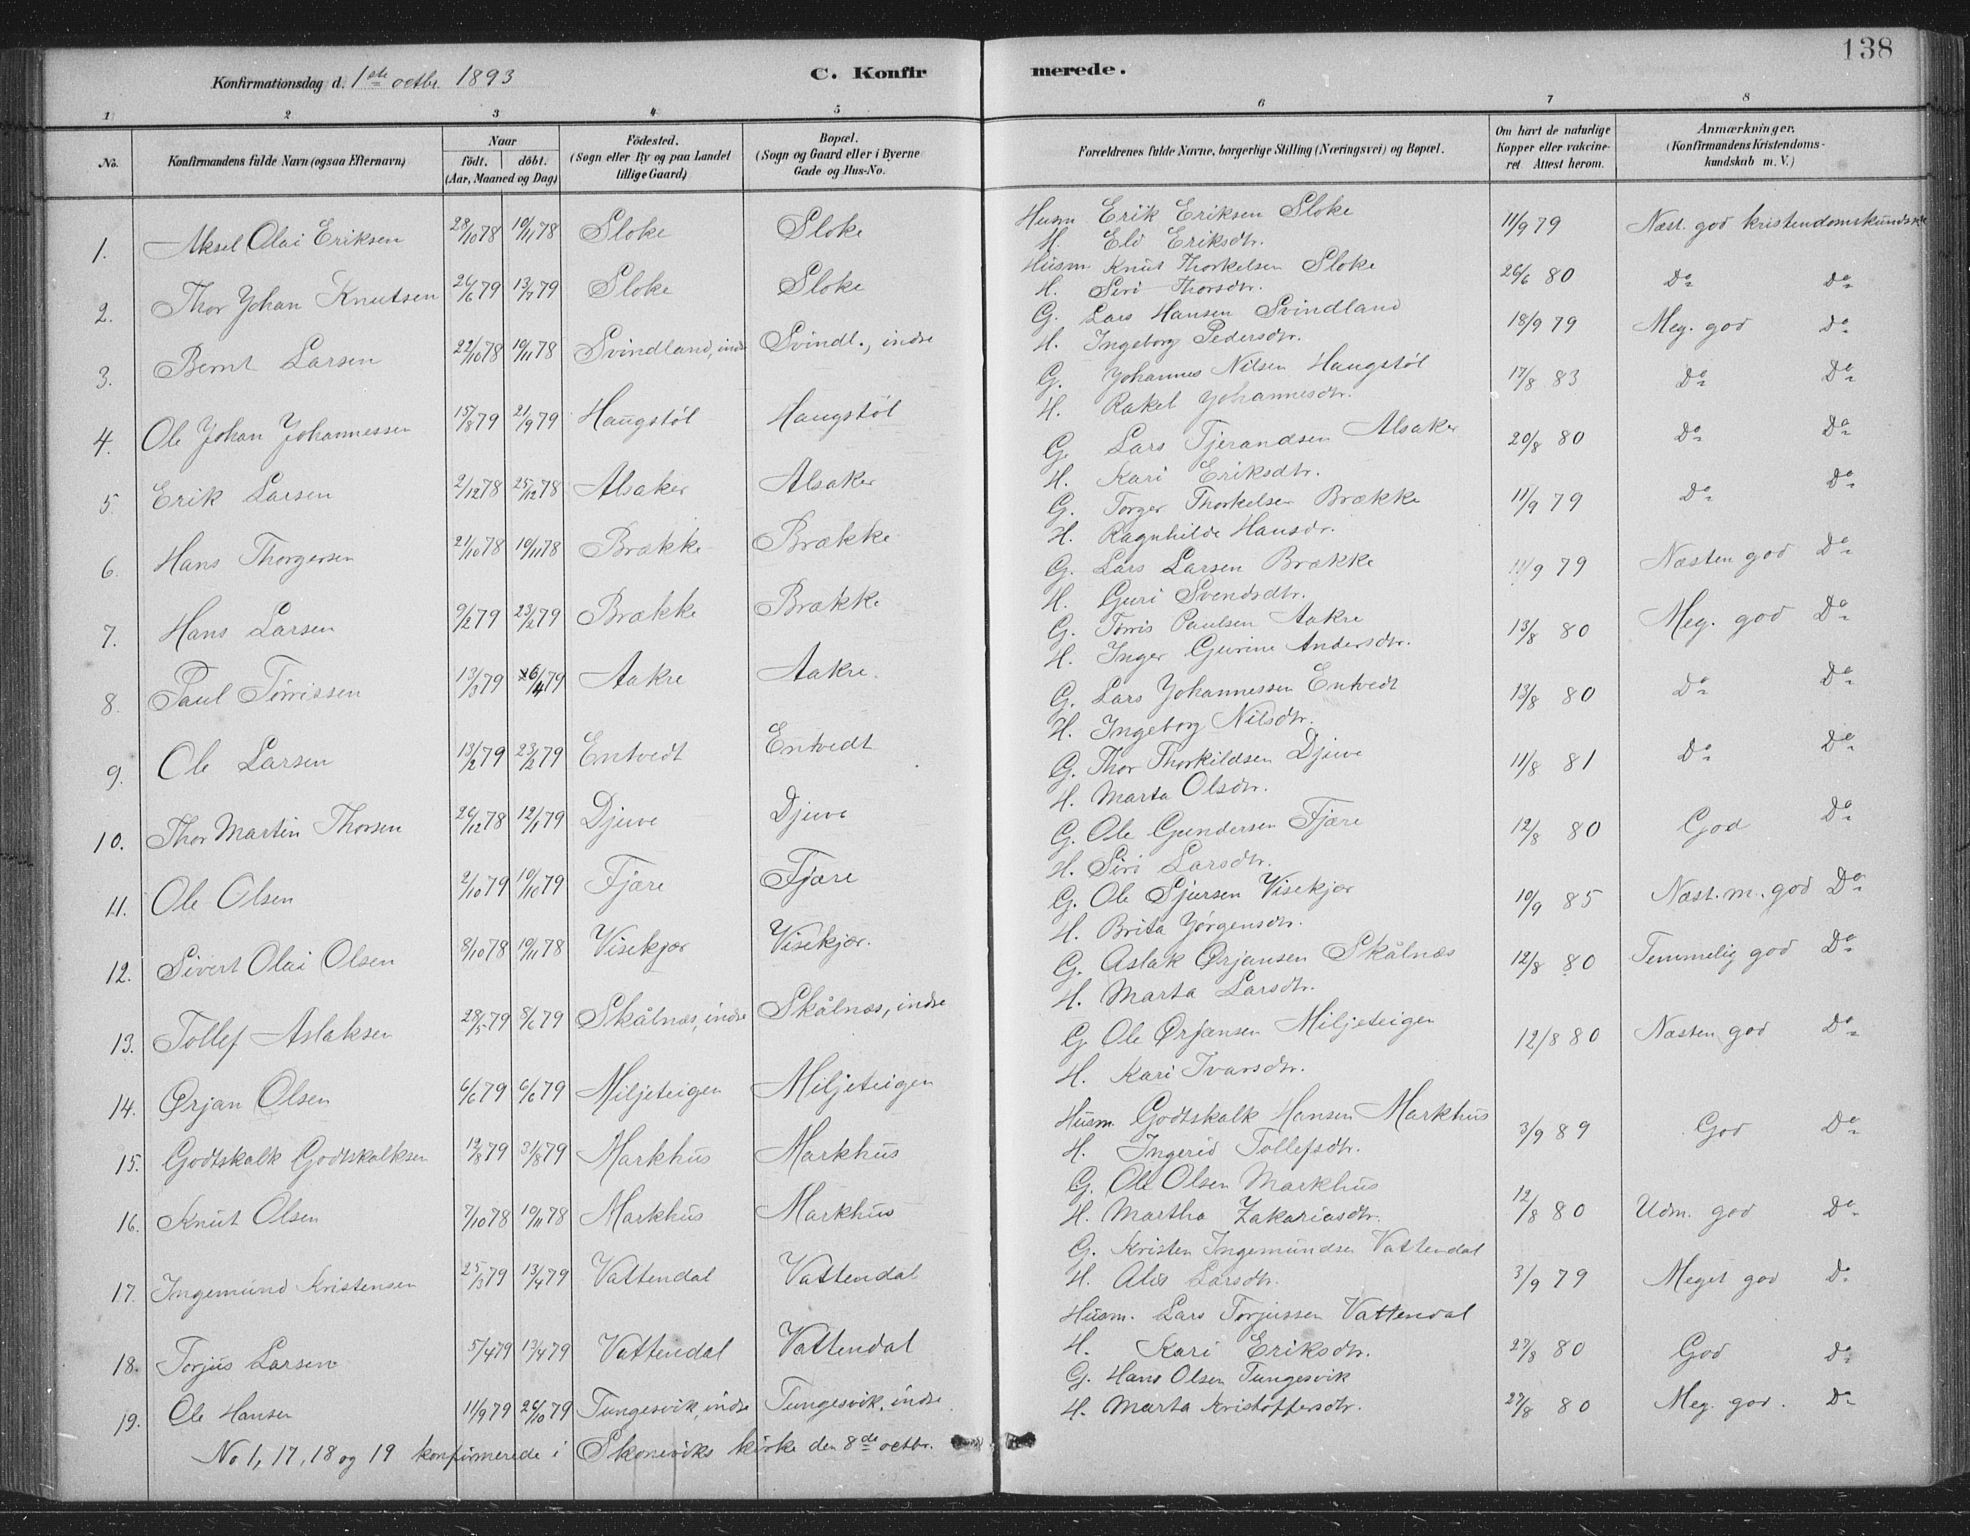 138
Konfirmationsdag d. 1ste octbr. 1893
C. Konfirmerede.
1 2 3 4 5 6 7 8
No.
Konfirmandens fulde Navn (ogsaa Efternavn)
Naar
födt. döbt.
(Aar, Maaned og Dag)
Födested.
(Sogn eller By og paa Landet
tillige Gaard)
Bopæl.
(Sogn og Gaard eller i Byerne
Gade og Hus-No.
Forældrenes fulde Navne, borgerlige Stilling (Næringsvei) og Bopæl.
Om havt de naturlige
Kopper eller vakcine-
ret. Attest herom.
Anmærkninger.
(Konfirmandens Kristendoms-
kundskab m. V.)
1. Aksel Olai Eriksen 28/10 78 10/11 78 Sloke Sloke Husm Erik Eriksen Sloke 11/9 79 Næst. god kristendomskundsk.
H. Eli Eriksdtr.
2. Thor Johan Knutsen 26/6 79 13/7 79 Sloke Sloke Husm Knut Thorkelsen Sloke 26/6 80 Do Do
H. Siri Thorsdtr.
3. Bernt Larsen 22/10 78 10/11 78 Svindland, indr Svindl., indre G. Lars Hansen Svindland 18/9 79 Meg. god Do
H. Ingeborg Pedersdtr.
4. Ole Johan Johannessen 15/8 79 21/9 79 Haugstøl Haugstøl G. Johannes Nilsen Haugstøl 17/8 83 Do Do
H. Rakel Johannesdtr.
5. Erik Larsen 2/12 78 25/12 78 Alsaker Alsaker G. Lars Tjerandsen Alsaker 20/8 80 Do Do
H. Kari Eriksdtr.
6. Hans Thorgersen 21/10 78 10/11 78 Brække Brække G. Torger Thorkelsen Brække 11/9 79 Do Do
H. Ragnhilde Hansdr.
7. Hans Larsen 9/2 79 23/2 79 Brække Brække G. Lars Larsen Brække 11/9 79 Næsten god Do
H. Guri Svendsdtr.
8. Paul Tørrissen 13/3 79 6/4 79 Aakre Aakre. G. Tørris Paulsen Aakre 13/8 80 Meg. god Do
H. Inger Gurine Andersdtr.
9. Ole Larsen 13/2 79 23/2 79 Entvedt Entvedt G. Lars Johannessen Entvedt 13/8 80 Do Do
H. Ingeborg Nilsdtr.
10. Thor Martin Thorsen 26/12 78 12/1 79 Djuve Djuve G. Thor Thorkildsen Djuve 11/8 81 Do Do
H. Marta Olsdtr.
11. Ole Olsen 2/10 79 19/10 79 Fjære Fjære G. Ole Gundersen Fjære 12/8 80 God Do
H. Siri Larsdtr.
12. Sivert Olai Olsen 8/10 78 10/11 78 Visekjær Visekjær. G. Ole Sjursen Visekjær 10/9 85 Næst. m. god Do
H. Brita Jørgensdtr.
13. Tollef Aslaksen 28/5 79 8/6 79 Skålnæs, indre Skålnæs, indre G. Aslak Ørjansen Skålnæs 12/8 80 Temmelig god Do
H. Marta Larsdtr.
14. Ørjan Olsen 6/6 79 6/6 79 Miljeteigen Miljeteigen G Ole Ørjansen Miljeteigen 12/8 80 Næsten god Do
H. Kari Ivarsdtr.
15. Godtskalk Godtskalksen 12/8 79 31/8 79 Markhus Markhus Husm Godtskalk Hansen Markhus 3/9 89 God Do
H. Ingerid Tollefsdtr.
16. Knut Olsen 7/10 78 10/11 78 Markhus Markhus G. Ole Olsen Markhus 12/8 80 Udm. god Do
H. Martha Zakariasdtr.
17. Ingemund Kristensen 25/3 79 13/4 79 Vattendal Vattendal G. Kristen Ingemundsen Vattendal 3/9 79 Meget god Do
H. Alis Larsdtr.
18. Torjus Larsen 5/4 79 13/4 79 Vattendal Vattendal Husm. Lars Torjussen Vattendal 27/8 80 God Do
H. Kari Eriksdtr.
19. Ole Hansen 11/9 79 26/10 79 Tungesvik, indre Tungesvik, indre G. Hans Olsen Tungesvik 27/8 80 Meg. god. Do
H. Marta Kristoffersdtr.
No 1, 17, 18 og 19 konfirmerede i Skoneviks kirke den 8de octbr.